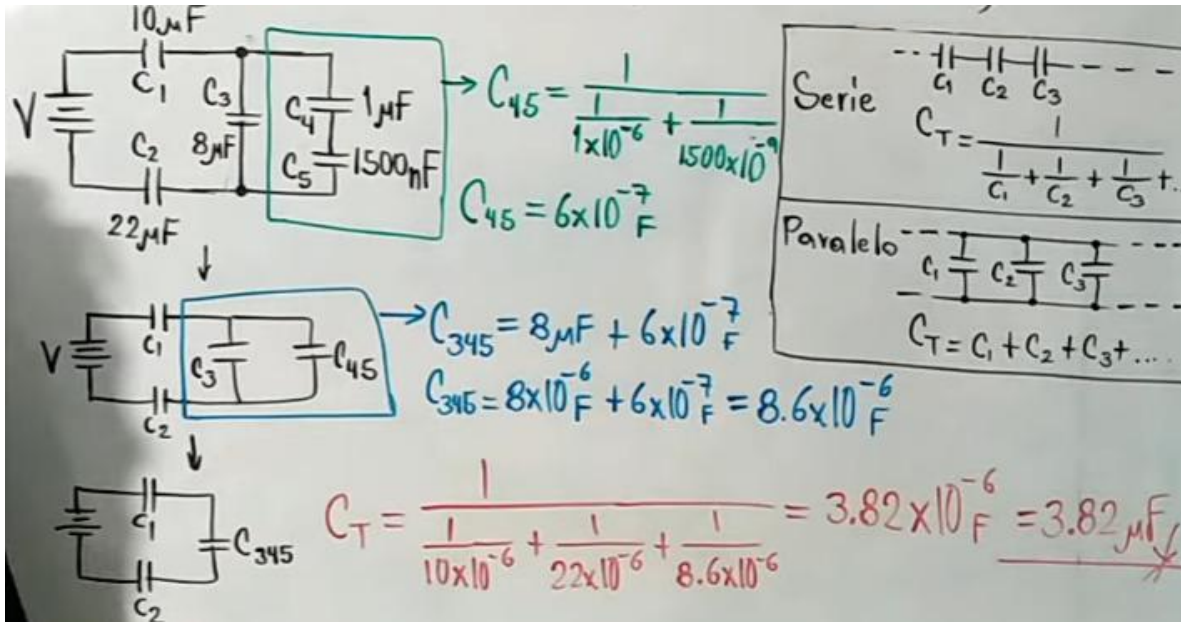 10μF
C₁
V
C₃
8μF
C₄ 1μF
C₅ 1500nF
C₂
22μF
C₄₅ = 1 / (1/1x10⁻⁶ + 1/1500x10⁻⁹)
C₄₅ = 6x10⁻⁷ F
Serie
C₁ C₂ C₃
C_T = 1 / (1/C₁ + 1/C₂ + 1/C₃ + ..
Paralelo
C₁ C₂ C₃
C_T = C₁ + C₂ + C₃ + ....
V
C₁
C₃ C₄₅
C₂
C₃₄₅ = 8μF + 6x10⁻⁷ F
C₃₄₅ = 8x10⁻⁶ F + 6x10⁻⁷ F = 8.6x10⁻⁶ F
C₁
C₃₄₅
C₂
C_T = 1 / (1/10x10⁻⁶ + 1/22x10⁻⁶ + 1/8.6x10⁻⁶) = 3.82x10⁻⁶ F = 3.82μF